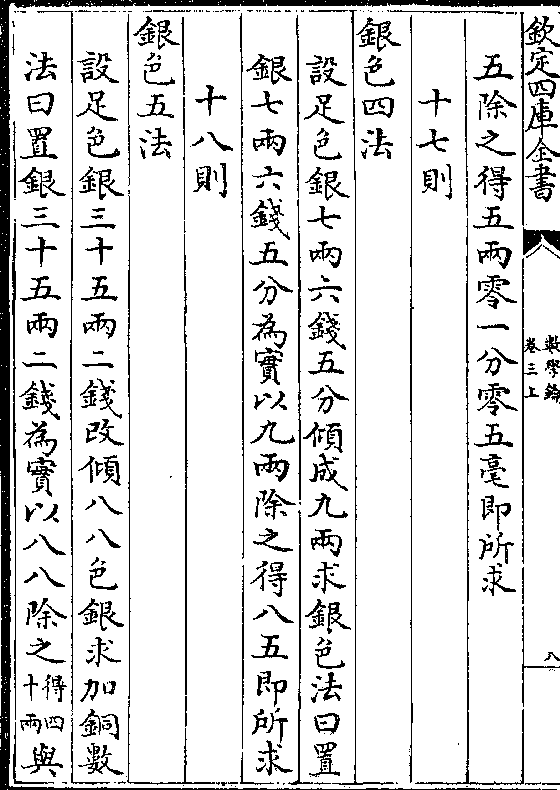 欽定四庫全書
數學鑰
卷三上
八
五除之得五兩零一分零五毫即所求
十七則
銀色四法
設足色銀七兩六錢五分傾成九兩求銀色法曰置
銀七兩六錢五分為實以九兩除之得八五即所求
十八則
銀色五法
設足色銀三十五兩二錢改傾八八色銀求加銅數
法曰置銀三十五兩二錢為實以八八除之得四十兩與